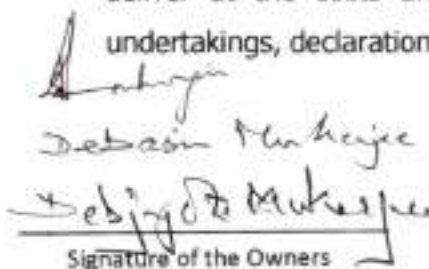 deliver at the costs
undertakings, declaration
Debasis Mukherjee
Debjyoti Mukherjee
Signature of the Owners